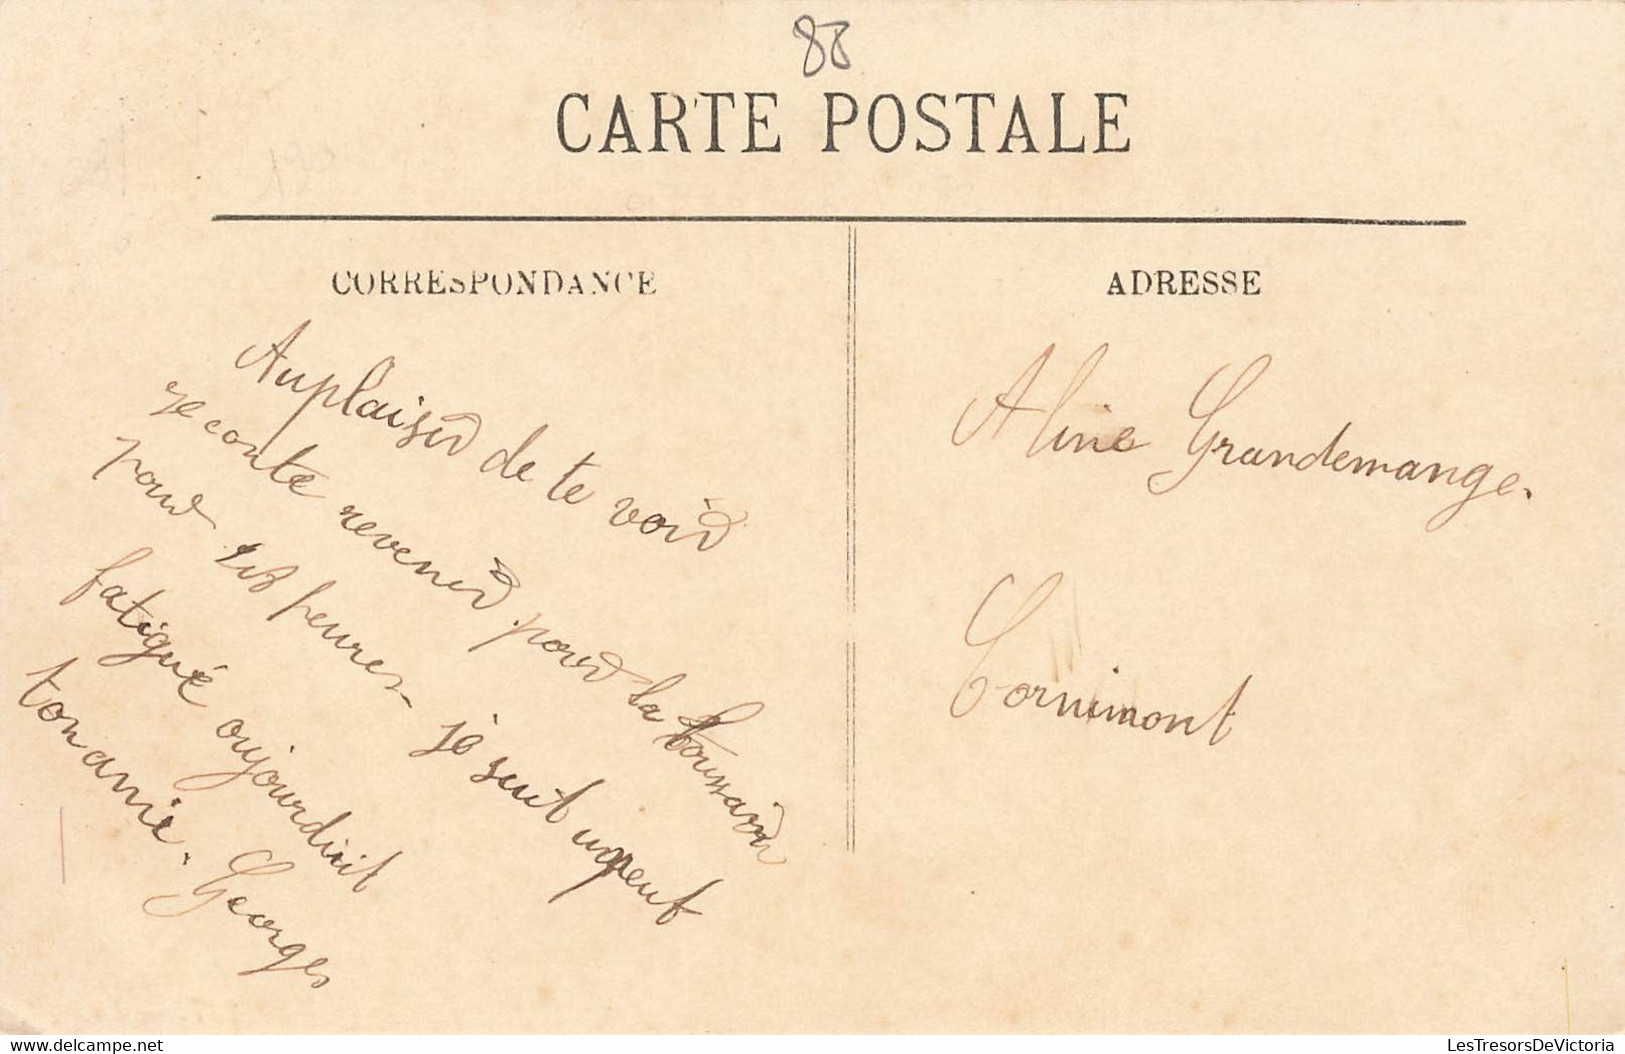 88
CARTE POSTALE
CORRESPONDANCE
ADRESSE
Auplaisir de te voir
je conte revenir pour la toussain
pour heures je suit unpeut
fatigué oujourdhit
ton amie. Georges
Aline Grandemange.
Cornimont
delcampe.net
LesTresorsDeVictoria